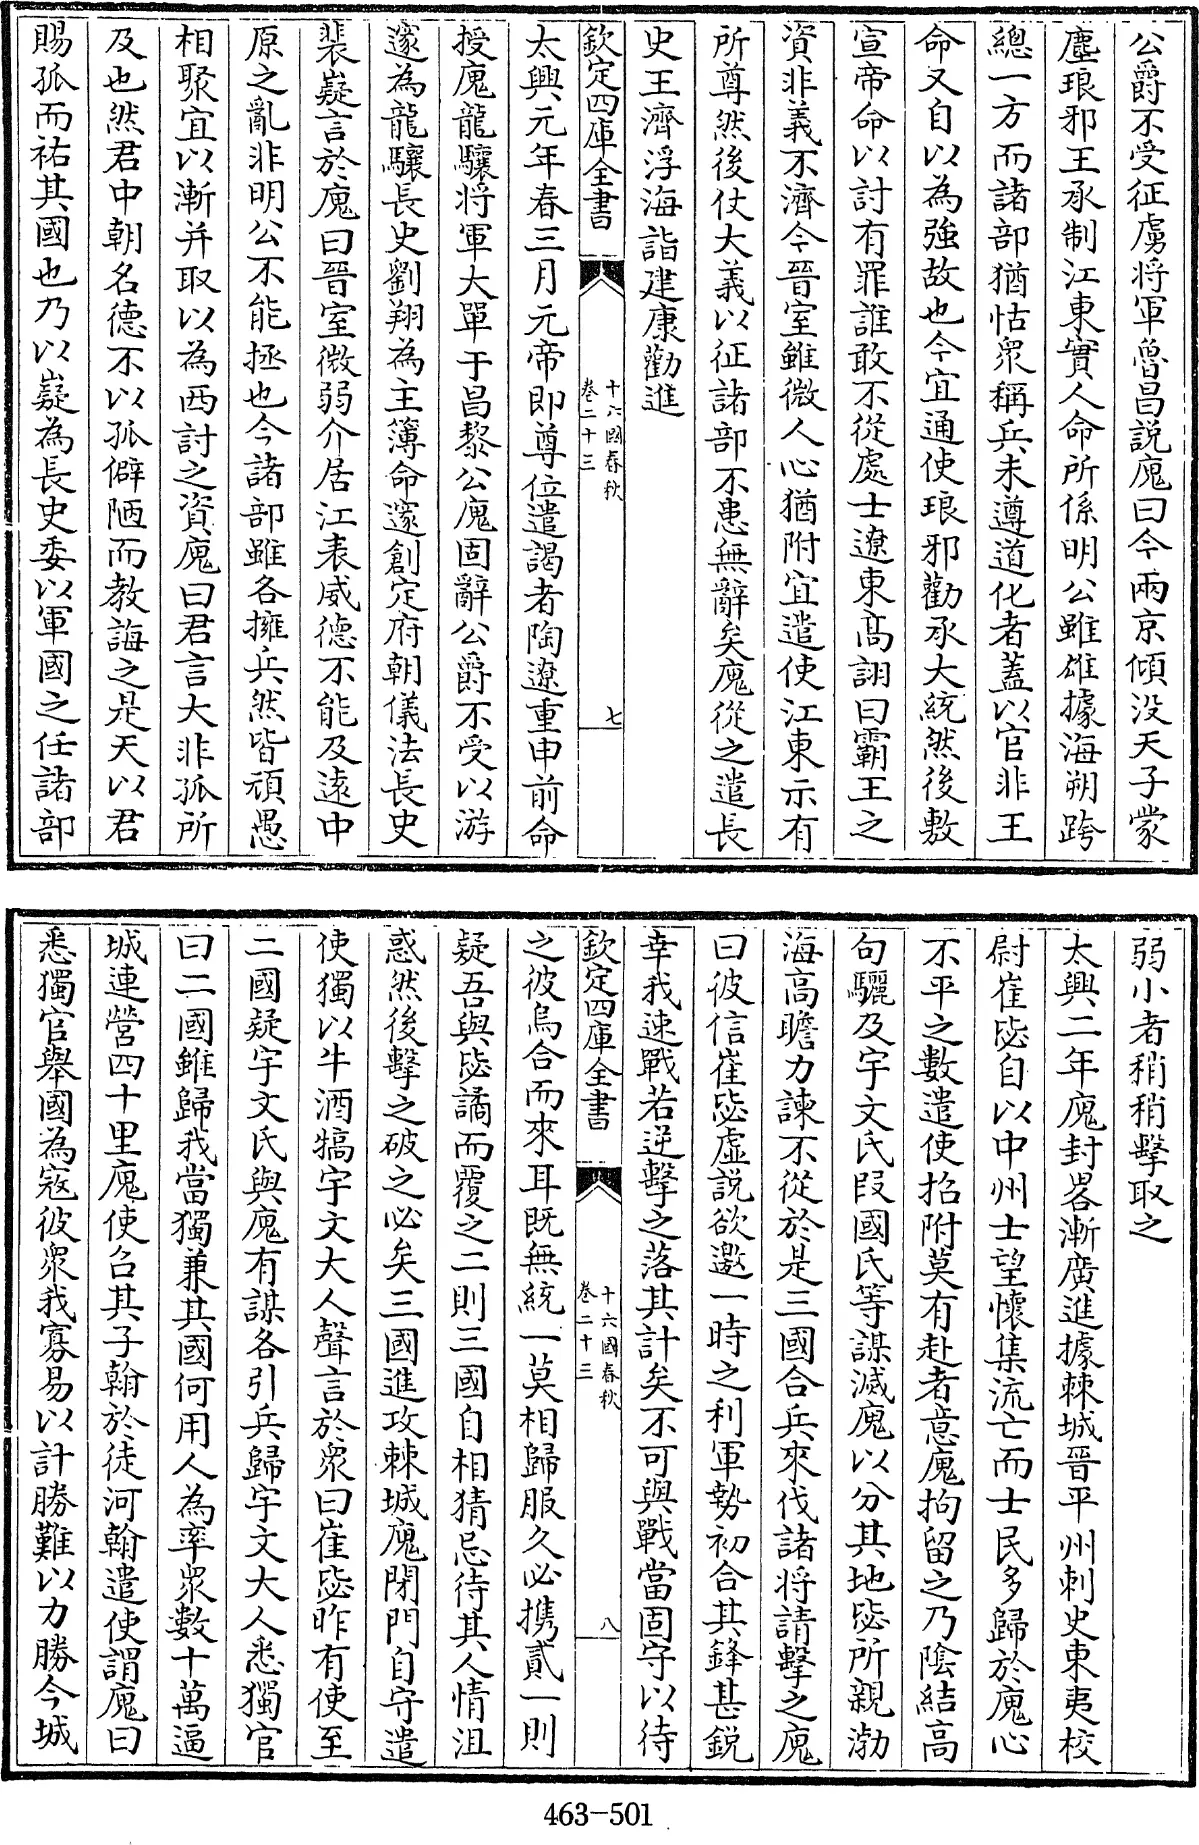 公爵不受征虜将軍魯昌説廆曰今兩京傾没天子蒙
塵琅邪王承制江東實人命所係明公雖雄據海朔跨
總一方而諸部猶怙衆稱兵未遵道化者蓋以官非王
命又自以為強故也今宜通使琅邪勸承大統然後敷
宣帝命以討有罪誰敢不從處士遼東高詡曰霸王之
資非義不濟今晉室雖微人心猶附宜遣使江東示有
所尊然後仗大義以征諸部不患無辭矣廆從之遣長
史王濟浮海詣建康勸進
欽定四庫全書
十六國春秋
卷二十三
七
太興元年春三月元帝即尊位遣謁者陶遼重申前命
授廆龍驤将軍大單于昌黎公廆固辭公爵不受以游
邃為龍驤長史劉翔為主簿命邃創定府朝儀法長史
裴嶷言於廆曰晉室微弱介居江表威德不能及遠中
原之亂非明公不能拯也今諸部雖各擁兵然皆頑愚
相聚宜以漸并取以為西討之資廆曰君言大非孤所
及也然君中朝名德不以孤僻陋而教誨之是天以君
賜孤而祐其國也乃以嶷為長史委以軍國之任諸部
弱小者稍稍擊取之
太興二年廆封畧漸廣進據棘城晉平州刺史東夷校
尉崔毖自以中州士望懷集流亡而士民多歸於廆心
不平之數遣使招附莫有赴者意廆拘留之乃陰結高
句驪及宇文氏段國氏等謀滅廆以分其地毖所親渤
海高瞻力諫不從於是三國合兵來伐諸将請擊之廆
曰彼信崔毖虛説欲邀一時之利軍勢初合其鋒甚銳
幸我速戰若逆擊之落其計矣不可與戰當固守以待
欽定四庫全書
十六國春秋
卷二十三
八
之彼烏合而來耳既無統一莫相歸服久必攜貳一則
疑吾與毖譎而覆之二則三國自相猜忌待其人情沮
惑然後擊之破之必矣三國進攻棘城廆閉門自守遣
使獨以牛酒犒宇文大人聲言於衆曰崔毖昨有使至
二國疑宇文氏與廆有謀各引兵歸宇文大人悉獨官
曰二國雖歸我當獨兼其國何用人為率衆數十萬逼
城連營四十里廆使召其子翰於徒河翰遣使謂廆曰
悉獨官舉國為寇彼衆我寡易以計勝難以力勝今城
463-501